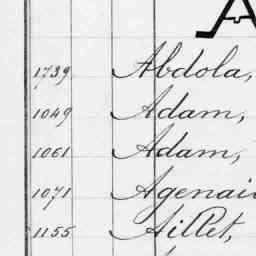 A
1739 Abdola,
1049 Adam,
1061 Adam,
1071 Agenai
1155 Aillet,